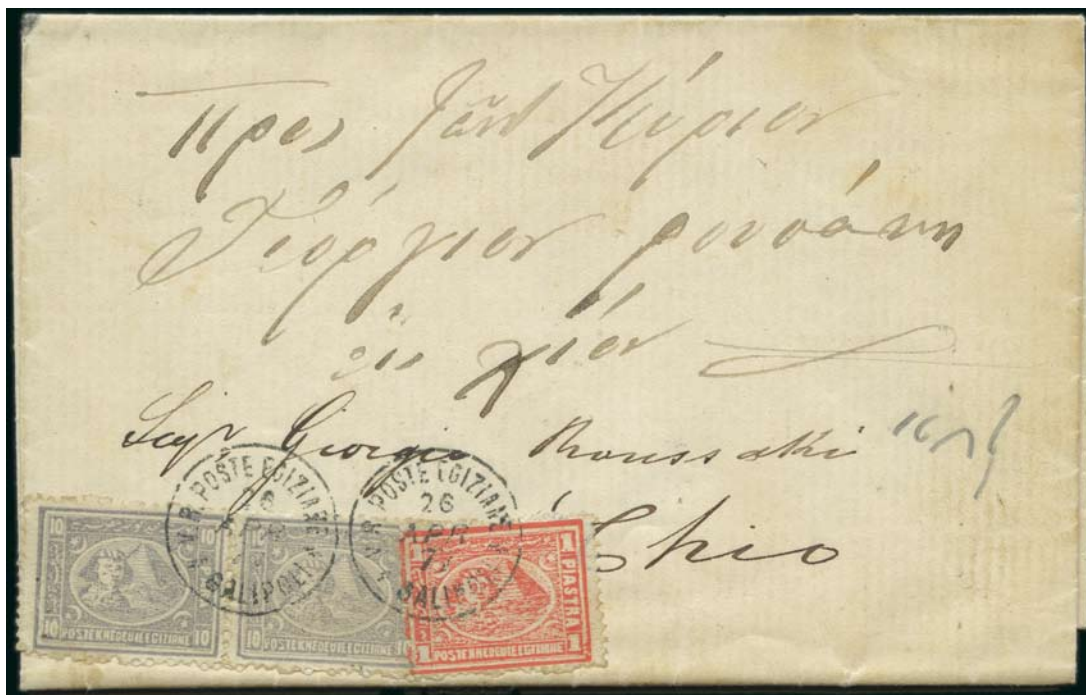 προς τον Κύριον
Γεώργιον ρουσάκη
εις χίον
Sigr Giorgio Roussaki
Chio
V.R. POSTE EGIZIANE
26
GALIPOLI
V.R. POSTE EGIZIANE
26
APR
GALIPOLI
10 10
10 POSTE KHEDEUIE EGIZIANE 10
10
10 POSTE KHEDEUIE EGIZIANE 10
1 PIASTRA 1
1 POSTE KHEDEUIE EGIZIANE